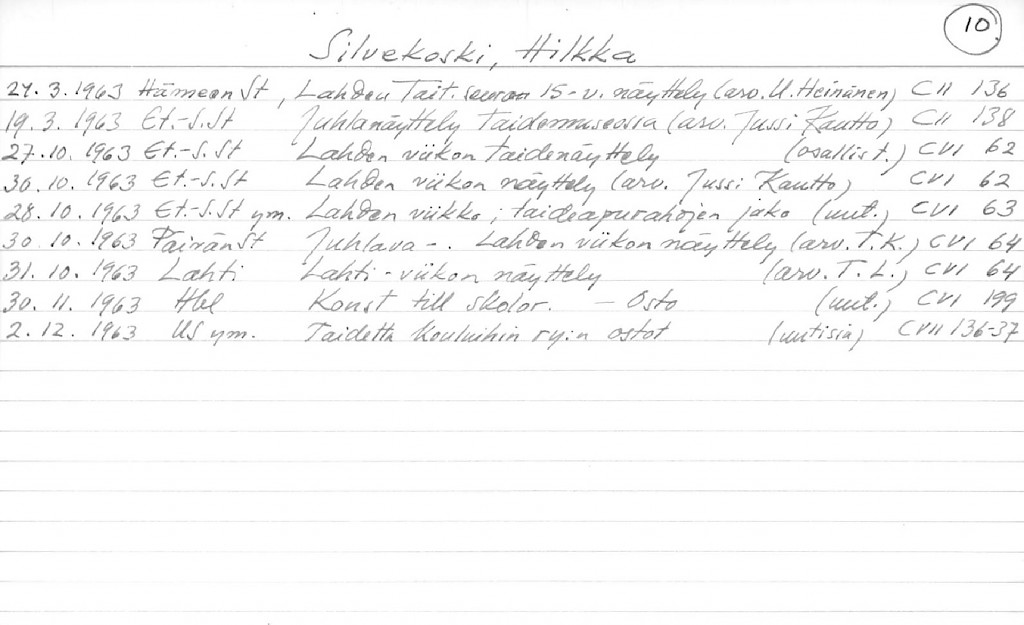 10.
Silvekoski, Hilkka
27.3.1963 Hämeen St, Lahden Tait. seuran 15-v. näyttely (arv. U. Heinänen) CII 136
19.3.1963 Et.-S.St Juhlanäyttely Taidemuseossa (arv. Jussi Kautto) CII 138
27.10.1963 Et.-S.St Lahden viikon taidenäyttely (osallist.) CVI 62
30.10.1963 Et.-S.St Lahden viikon näyttely (arv. Jussi Kautto) CVI 62
28.10.1963 Et.-S.St ym. Lahden viikko; taideapurahojen jako (uut.) CVI 63
30.10.1963 PäivänSt Juhlava -. Lahden viikon näyttely (arv. T.K.) CVI 64
31.10.1963 Lahti Lahti-viikon näyttely (arv. T.L.) CVI 64
30.11.1963 Hbl Konst till skolor. - Osto (uut.) CVI 199
2.12.1963 US ym. Taidetta Kouluihin ry:n ostot (uutisia) CVII 136-37